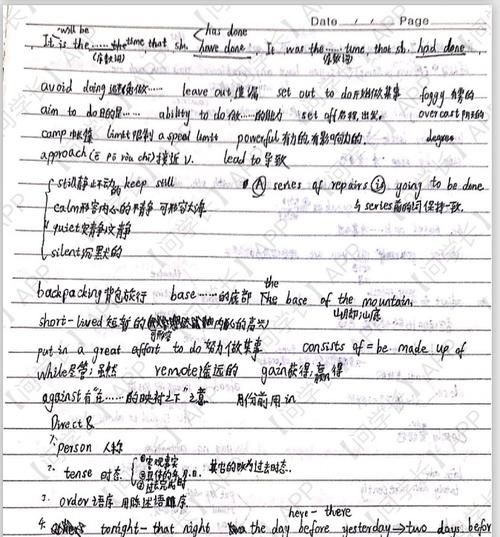 Date / / Page
will be
has done
It is the ...... time, that sb. have done. It was the ...... time, that sb. had done.
(序数词) (序数词)
avoid doing 避免做…… leave out, 遗漏 set out to do 开始做某事 foggy 有雾的
aim to do 目的是…… ability to do 做……的能力 set off 启程,出发. overcast 阴天的
camp 帐篷 limit 限制 a speed limit powerful 有力的,有影响力的. degree
approach 接近 v. lead to 导致
still 静止不动的 keep still A series of repairs is going to be done
calm 形容内心的平静 可形容大海 与 series 前的词保持一致.
quiet 安静文静
silent 沉默的
the
backpacking 背包旅行 base ……的底部 The base of the mountain,
short-lived 短暂的 山脚,山底
put in a great effort to do 努力做某事 consists of = be made up of
while 尽管;虽然 remote 遥远的 gain 获得,赢得
against 有"在……的映衬之下"之意 月份前用 in
Direct &
1. person 人称
2. tense 时态 ①客观事实 其它的改为过去时态.
③过去完成时
3. order 语序 用陈述语序
here - there
4. tonight - that night the day before yesterday → two days before